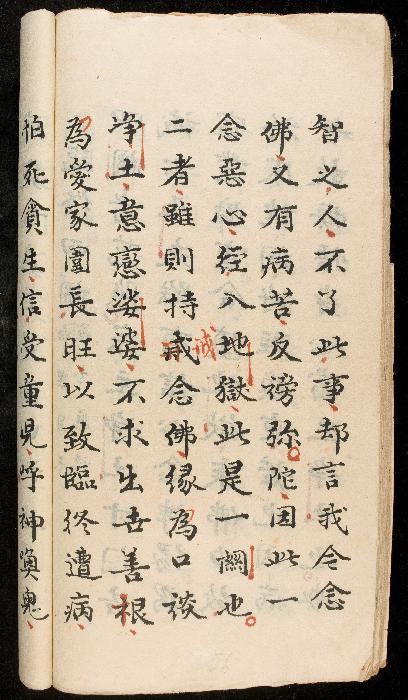 智之人不了此事却言我今念
佛又有病苦反謗弥陀因此一
念惡心徑入地獄此是一關也
二者雖則持戒念佛緣為口談
戒
净土意戀娑婆不求出世善根
為愛家園長旺以致臨終遭病
怕死貪生信受童兒呼神喚鬼